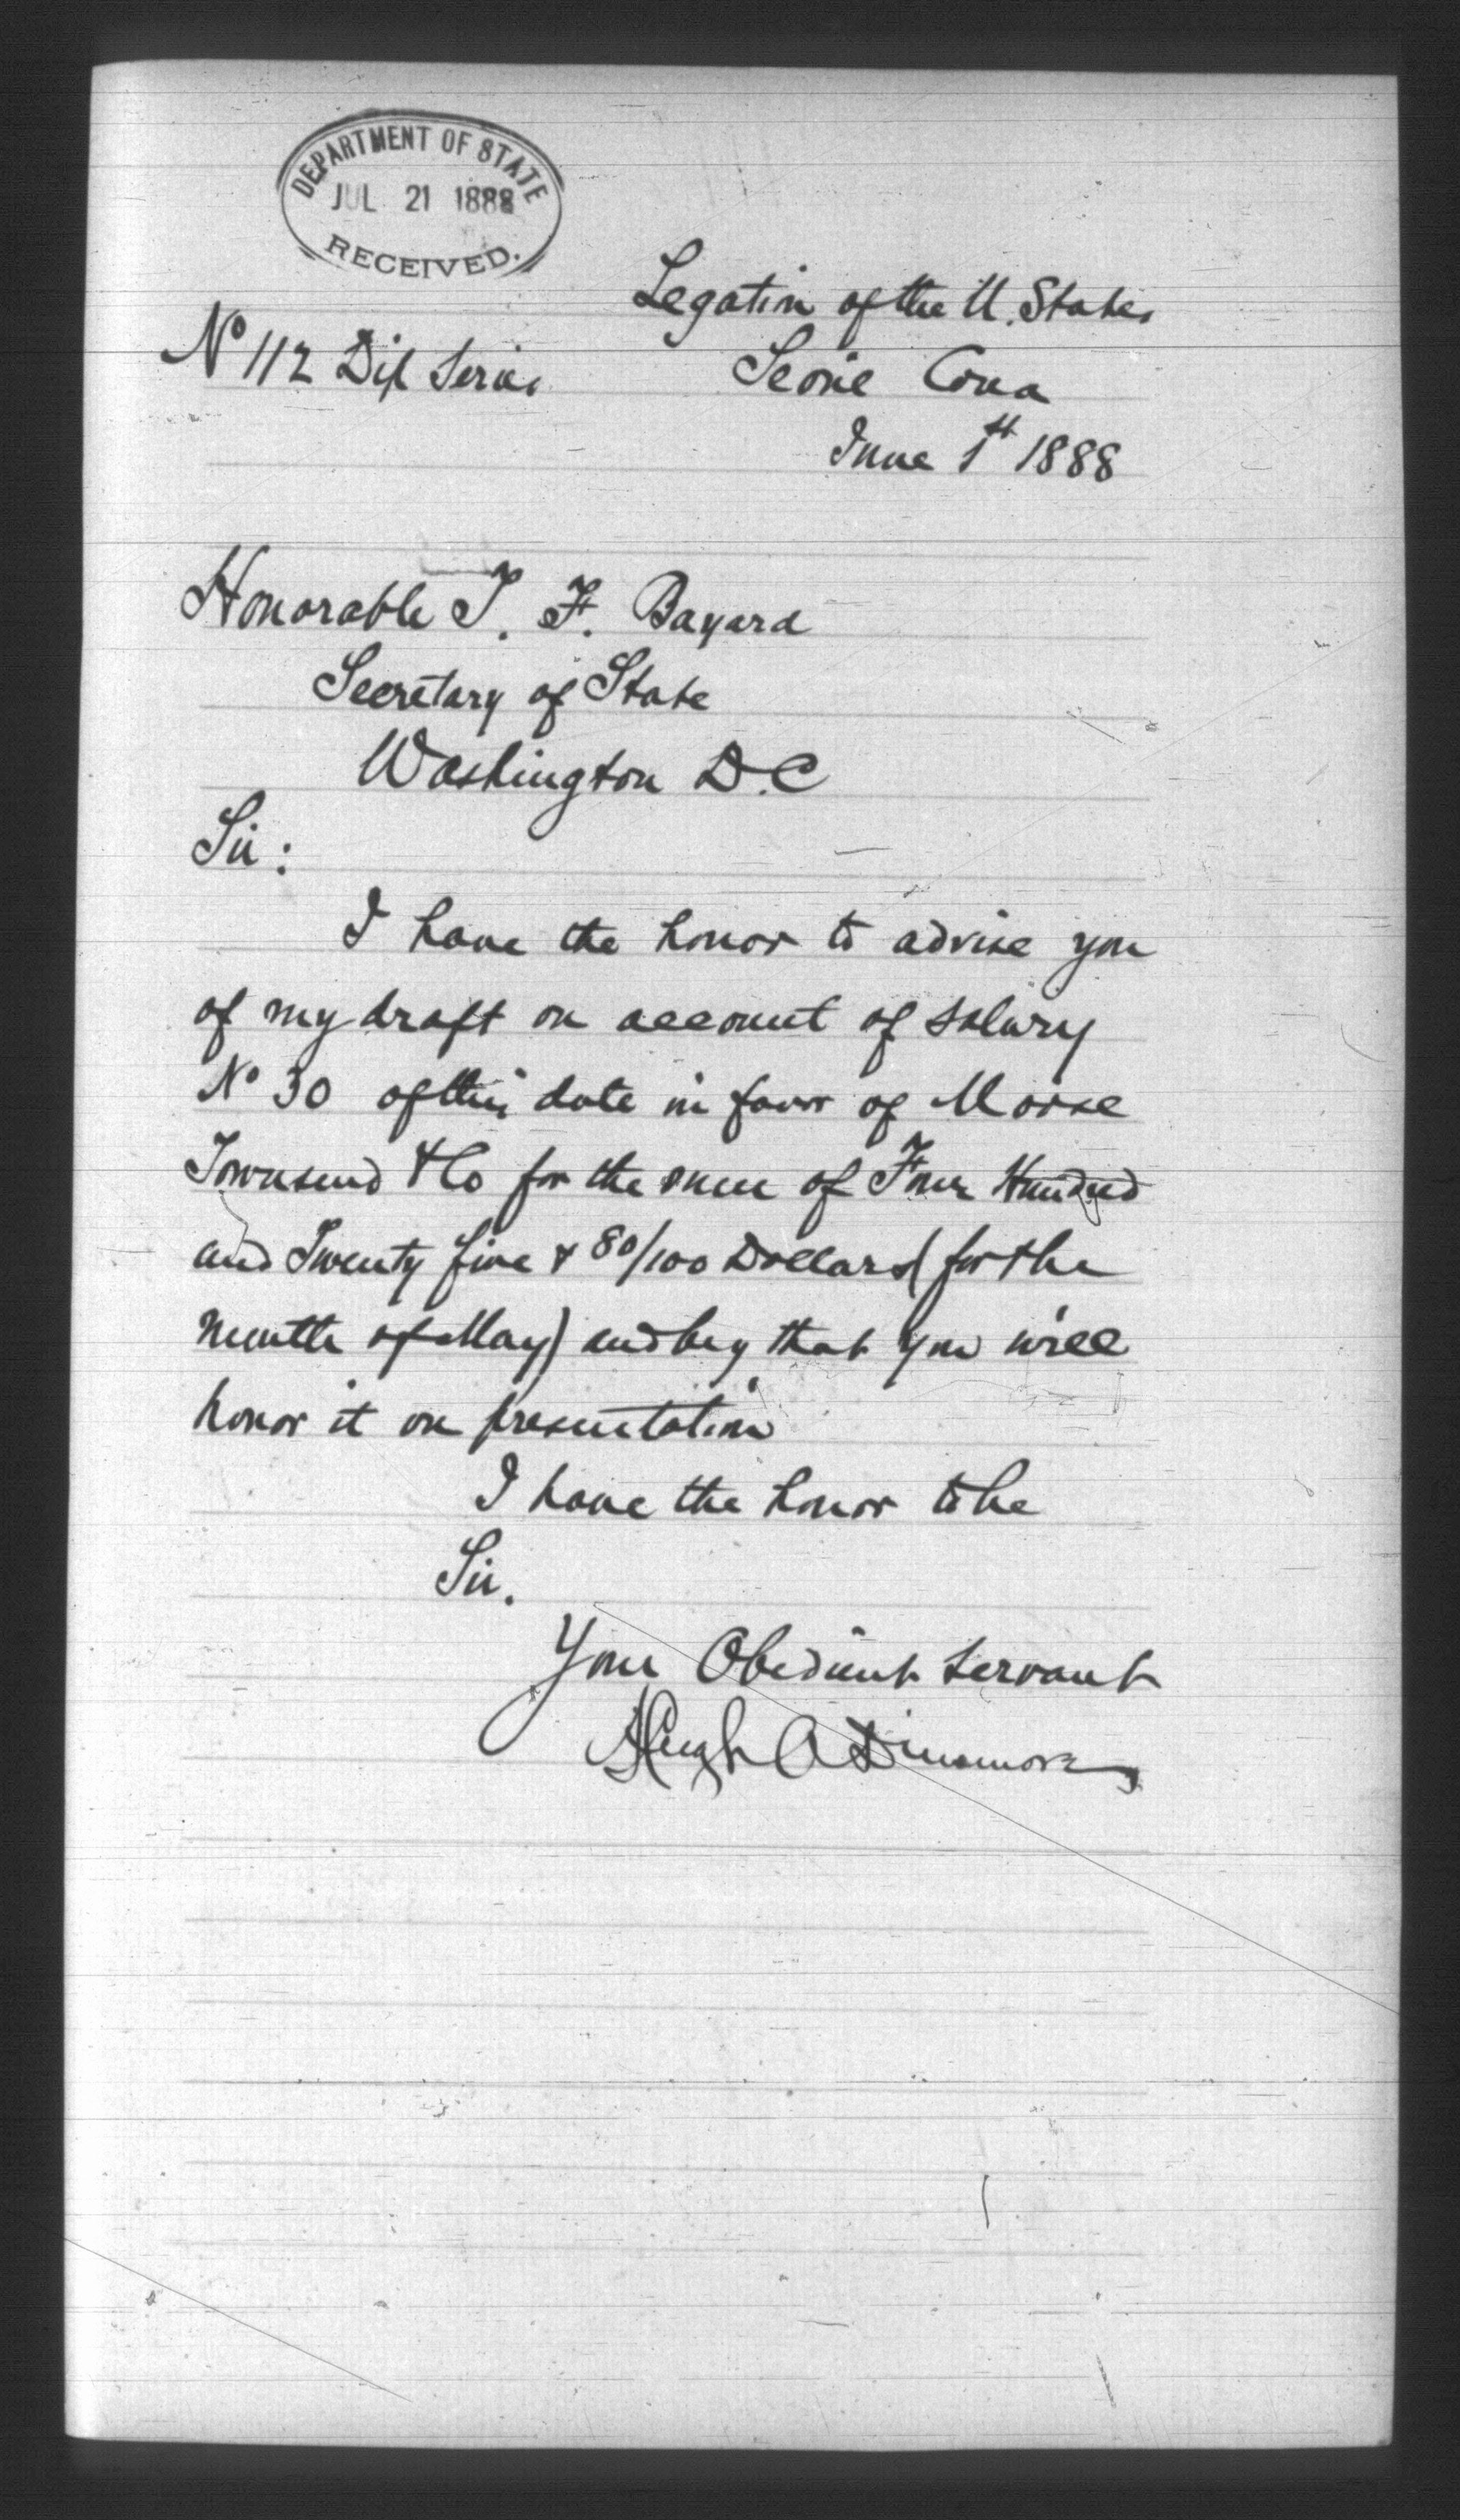 DEPARTMENT OF STATE
JUL 21 1888
RECEIVED.
Legation of the U. States
No 112 Dip Series
Seoul Corea
June 1st 1888
Honorable T. F. Bayard
Secretary of State
Washington D.C
Sir:
I have the honor to advise you
of my draft on account of salary
No 30 of this date in favor of Morse
Townsend & Co for the sum of Four Hundred
and Twenty five & 80/100 Dollars (for the
month of May) and beg that you will
honor it on presentation
I have the honor to be
Sir.
Your Obedient Servant
Hugh A Dinsmore